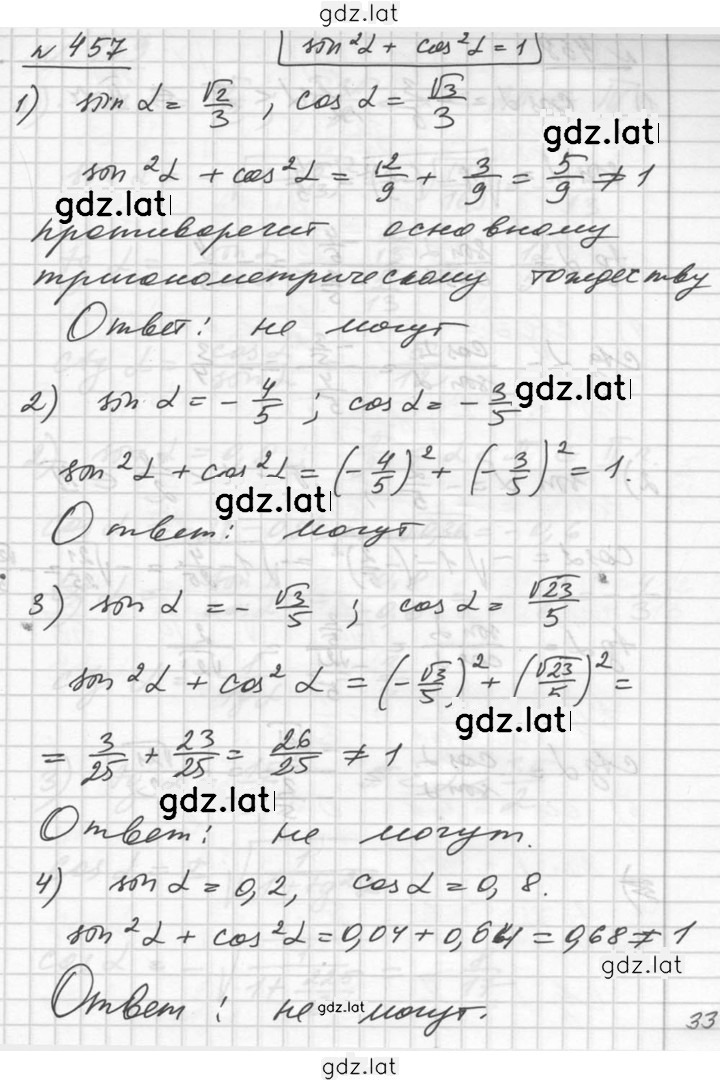 gdz.lat
№ 457 sin²α + cos²α = 1
1) sin α = √2/3 , cos α = √3/3
gdz.lat
sin²α + cos²α = 2/9 + 3/9 = 5/9 ≠ 1
gdz.lat
противоречит основному
тригонометрическому тождеству
Ответ: не могут
2) sin α = - 4/5 ; cos α = - 3/5
gdz.lat
sin²α + cos²α = (- 4/5)² + (- 3/5)² = 1.
gdz.lat
Ответ: могут
3) sin α = - √3/5 ; cos α = √23/5
sin²α + cos²α = (- √3/5)² + (√23/5)² =
gdz.lat
= 3/25 + 23/25 = 26/25 ≠ 1
gdz.lat
Ответ: не могут.
4) sin α = 0,2, cos α = 0,8.
sin²α + cos²α = 0,04 + 0,64 = 0,68 ≠ 1
gdz.lat
Ответ: не могут.
gdz.lat
33
gdz.lat